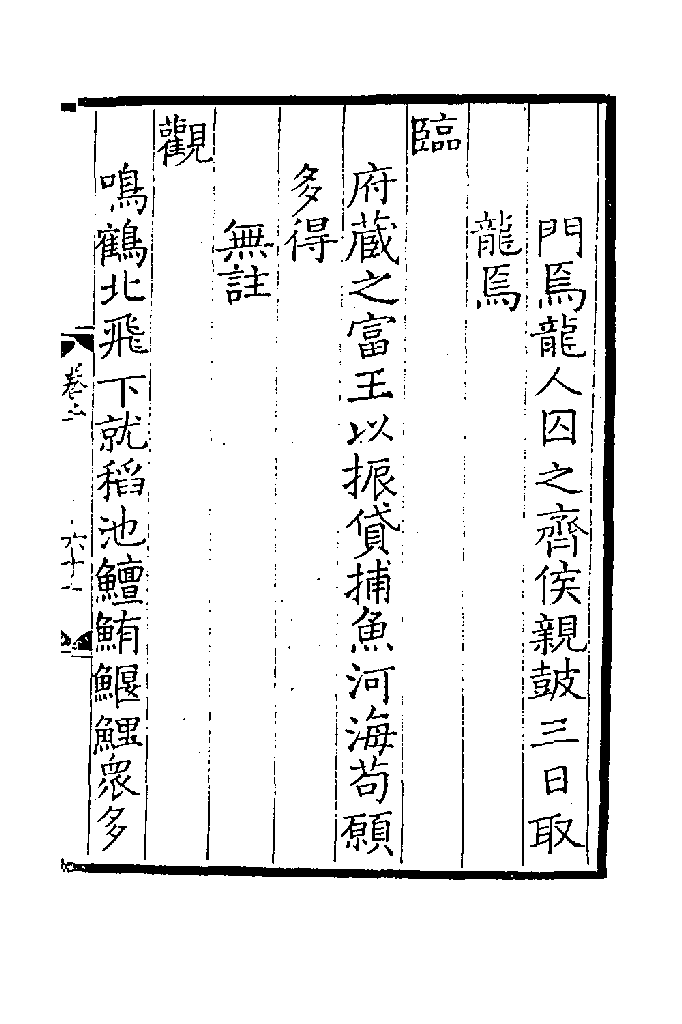 門焉龍人囚之齊侯親鼓三日取
龍焉
臨
府蔵之富王以振貸捕魚河海苟願
多得
無註
觀
鳴鶴北飛下就稻池鱣鮪鰋鯉衆多
卷二
六十一